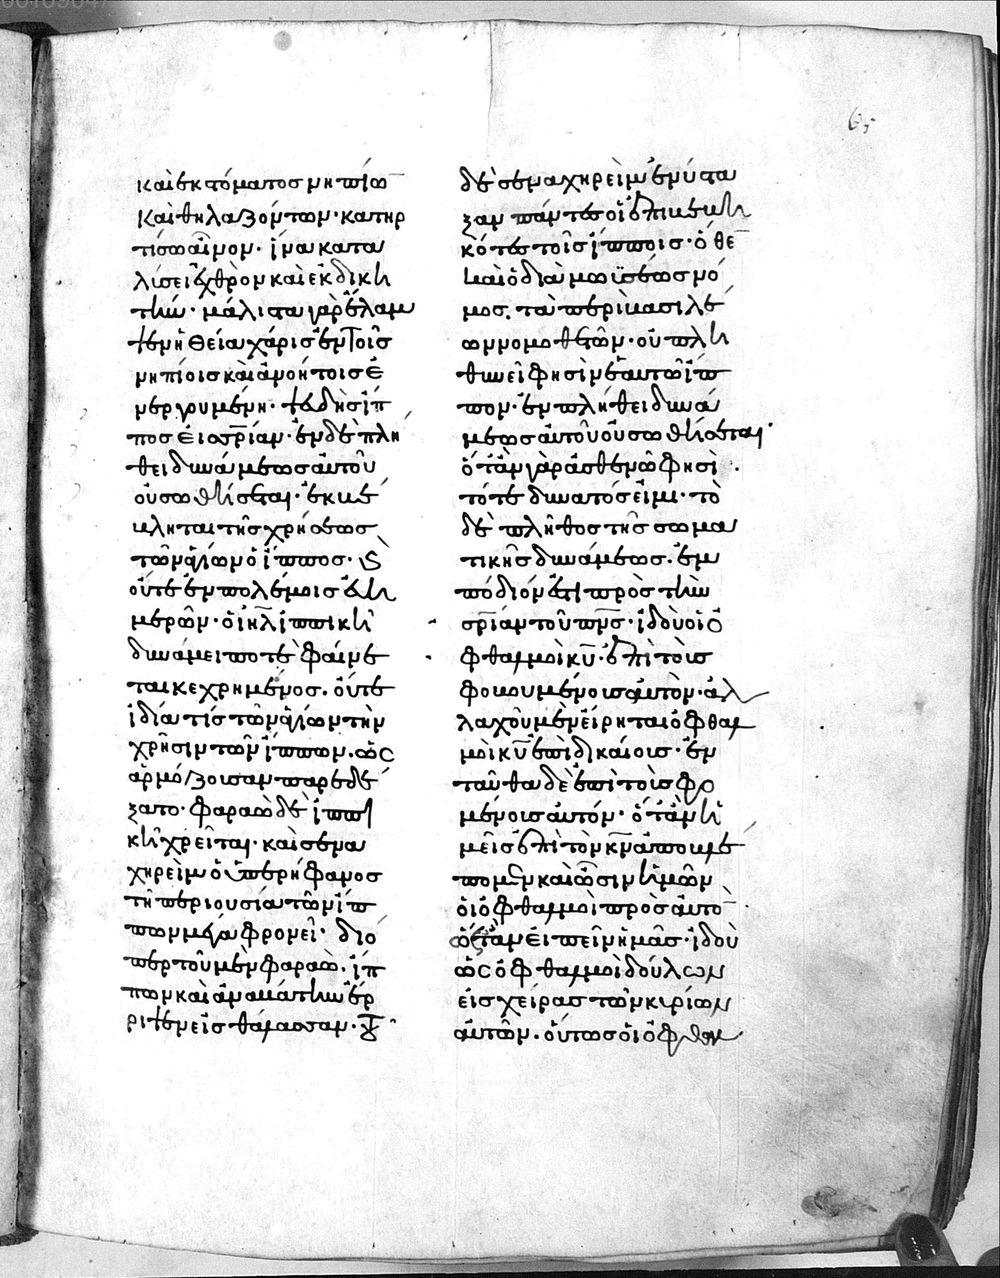 καὶ ἐκ στόματος νηπίω
καὶ θηλαζόντων· κατηρ
τίσω αἶνον· ἵνα κατα
λύσει ἐχθρὸν καὶ ἐκδικη
τήν· μάλιστα γὰρ ἔλαμ
ψεν ἡ θεία χάρις ἐν τοῖς
νηπίοις καὶ ἀνοήτοις ἐ
νεργουμένη· ψεδὴς ἵπ
πος εἰς σρίαν· ἐν δὲ πλή
θει δυνάμεως αὐτοῦ
οὐ σωθήσεται· ἐκβέ
βληται τῆς χρήσεως
τῶν ἁγίων ὁ ἵππος· καὶ
οὔτε ἐν πολέμοις εὐη
μερῶν· ὁ ιηλ ἱππικῆ
δυνάμει ποτὲ φαίνε
ται κεχρημένος. οὔτε
ἰδία τίς τῶν ἁγίων τὴν
χρῆσιν τῶν ἵππων. ὡς
ἁρμόζουσαν παρεδέ
ξατο· φαραω δὲ ἵππω
κῆ χρεῖται· καὶ σενα
χηρεὶμ ὁ ὑπερήφανος
τῆ περιουσία τῶν ἵπ
πων μέγα φρονεῖ· διό
περ τοῦ μὲν φαραὼ. ἵπ
πον καὶ ἀναβάτην ἔρ
ριψεν εἰς θάλασσαν· τοῦ
δὲ σεναχηρεὶμ ἐνύστα
ξαν πάντες οἱ ἐπιβεβη
κότες τοῖς ἵπποις· ὅθε
καὶ ὁ δια μωϋσέως νό
μος. τὰ περὶ βασιλέ
ων νομοθετῶν· οὐ πλη
θυνεῖ φησὶν ἑαυτῶ ἵπ
πον· ἐν πλήθει δυνά
μεως αὐτοῦ οὐ σωθήσεται·
ὅταν γὰρ ἀσθενῶ φησὶ.
τότε δυνατός εἰμι· τὸ
δὲ πλῆθος τῆς σωμα
τικῆς δυνάμεως. ἐμ
πόδιόν ἐστι πρὸς τὴν
σρίαν τοῦ πνς· ἰδοὺ οἱ ὀ
φθαλμοὶ κυ· ἐπὶ τοὺς
φοβουμένους αὐτόν· ἀλ
λαχοῦ μὲν εἴρηται ὀφθαλ
μοὶ κυ ἐπὶ δικαίους· ἐν
ταῦθα δὲ ἐπὶ τοὺς φο
μένους αὐτόν· ὅταν ἡ
μεῖς ἐπὶ τὸν κν ἀποβλέ
πομεν καὶ ὦσιν ἡμῶν
οἱ ὀφθαλμοὶ πρὸς αὐτὸ
ὥστ᾽ ἂν εἰπεῖν ἡμᾶς· ἰδοὺ
ὡς ὀφθαλμοὶ δούλων
εἰς χείρας τῶν κυρίων
αὐτῶν. οὕτως οἱ ὀφθαλ